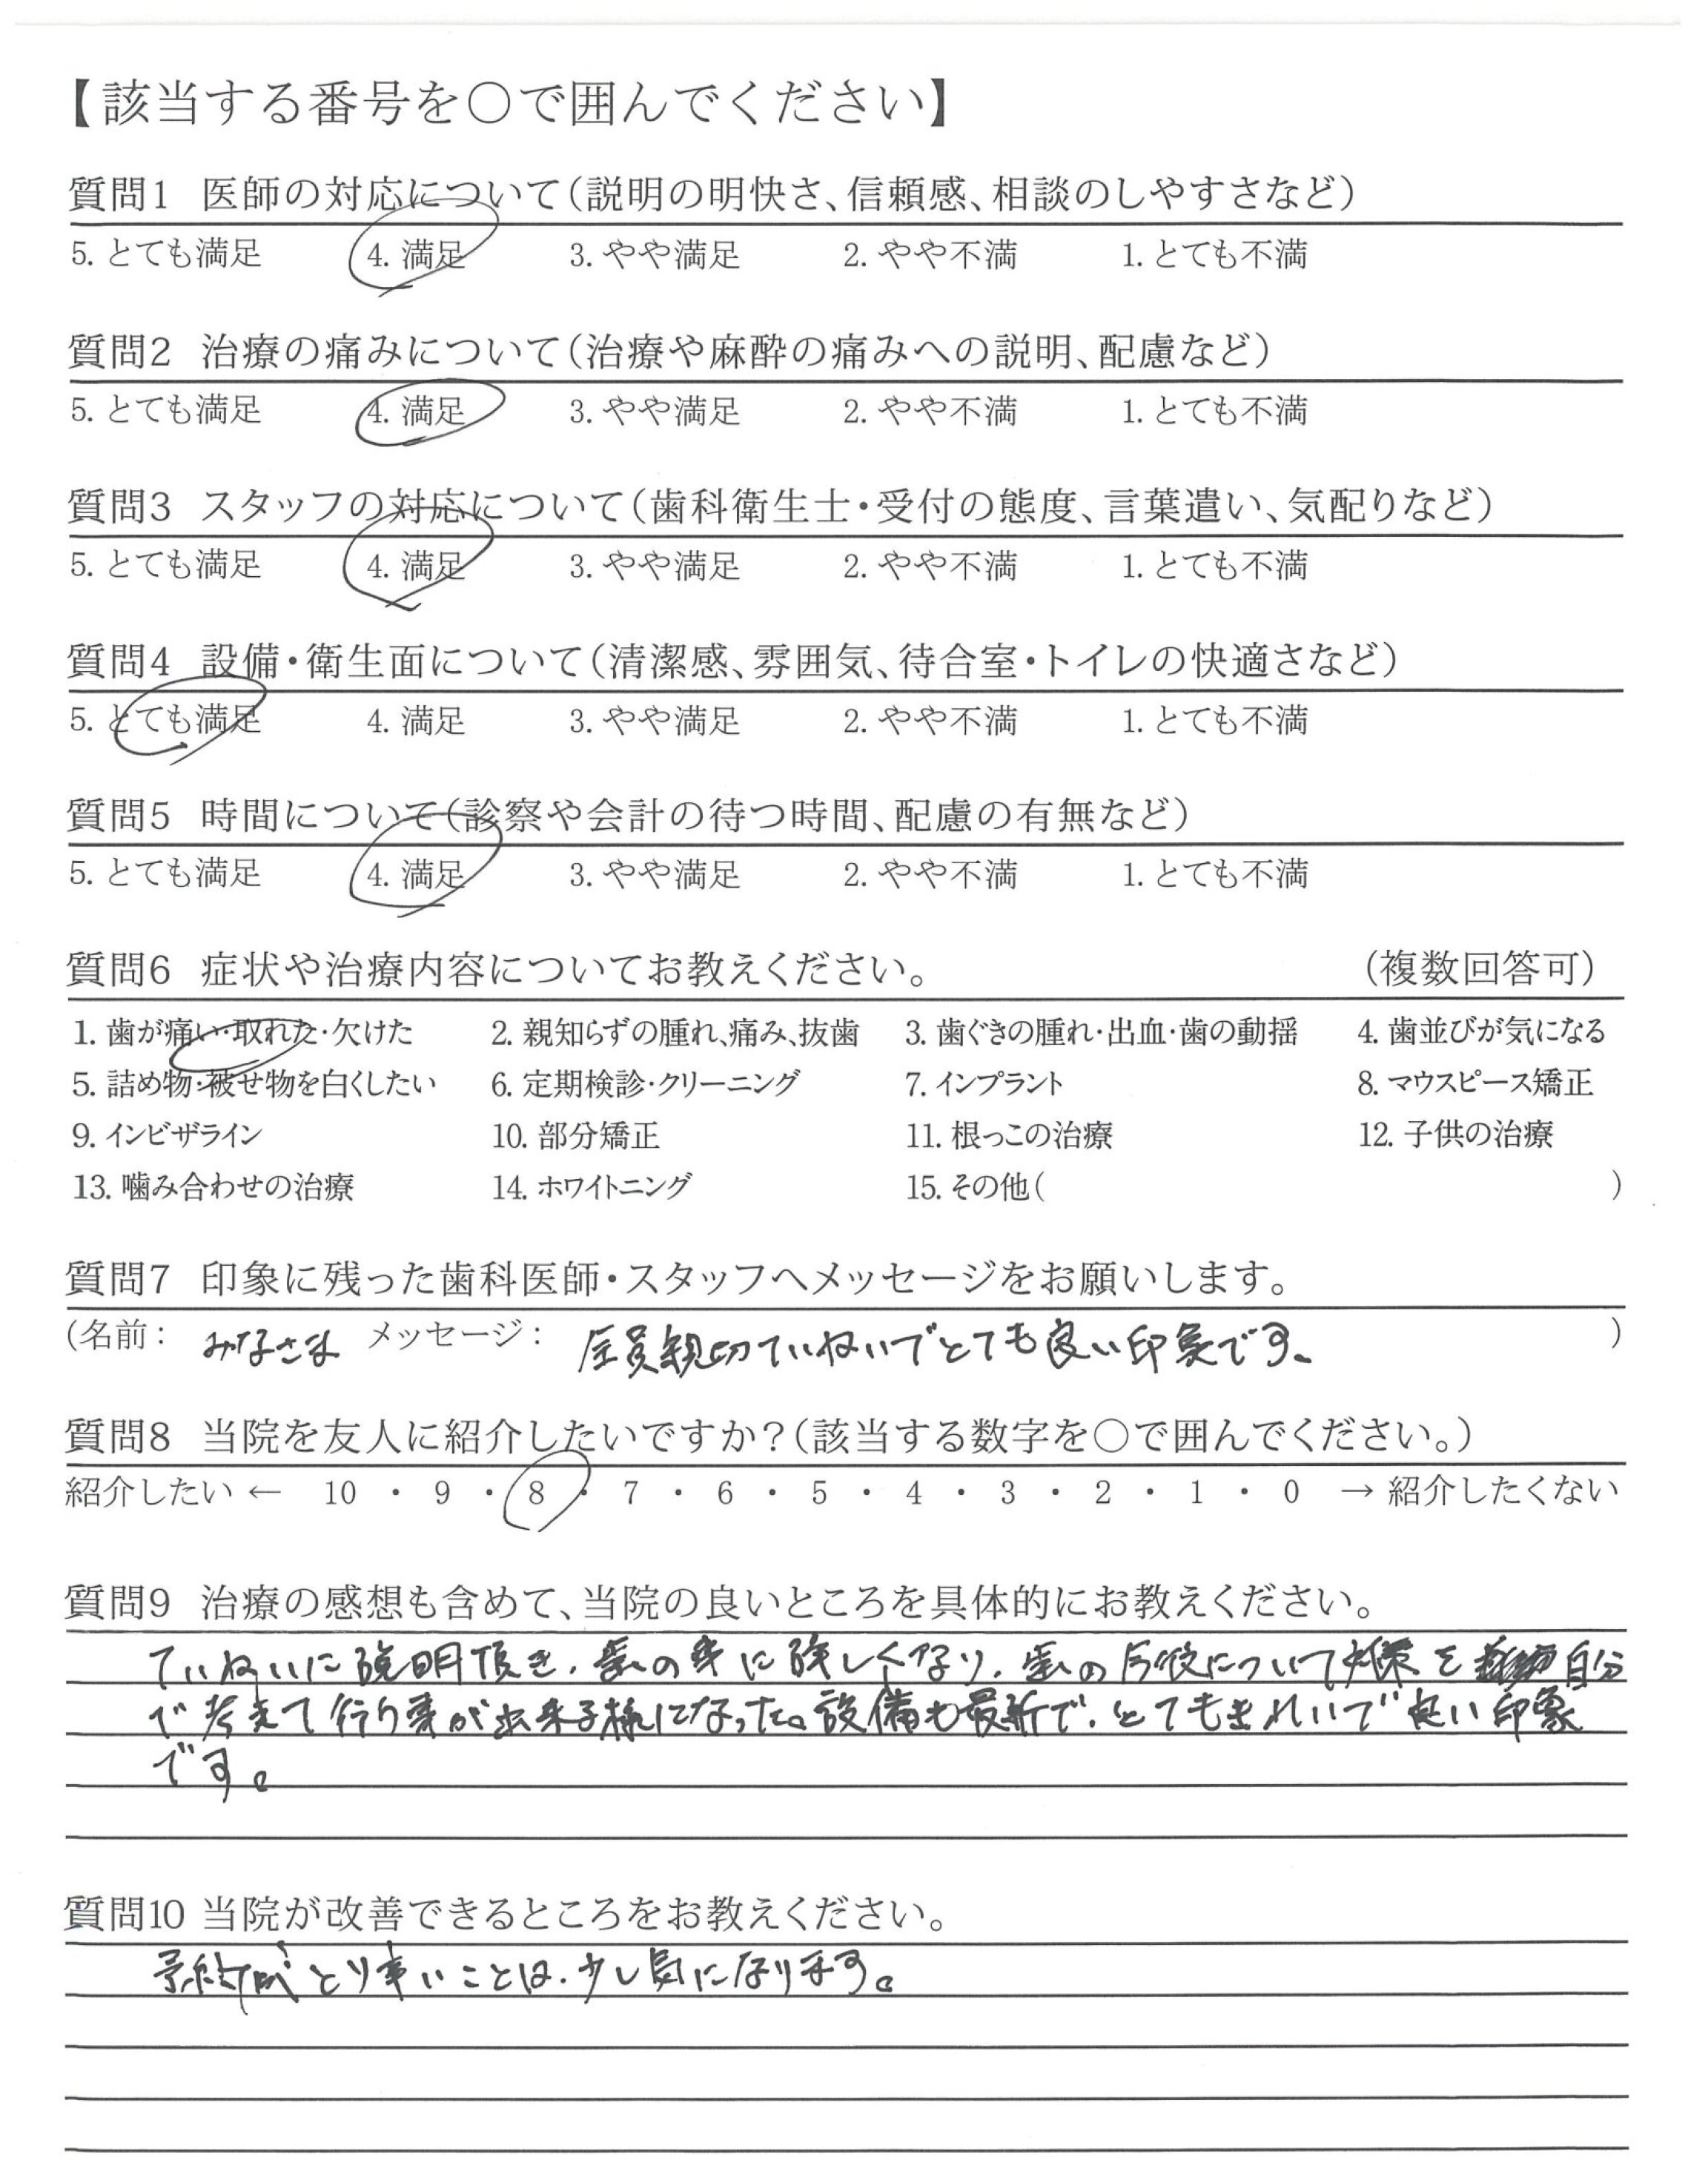 【該当する番号を○で囲んでください】
質問1 医師の対応について(説明の明快さ、信頼感、相談のしやすさなど)
5. とても満足 4. 満足 3. やや満足 2. やや不満 1. とても不満
質問2 治療の痛みについて(治療や麻酔の痛みへの説明、配慮など)
5. とても満足 4. 満足 3. やや満足 2. やや不満 1. とても不満
質問3 スタッフの対応について(歯科衛生士・受付の態度、言葉遣い、気配りなど)
5. とても満足 4. 満足 3. やや満足 2. やや不満 1. とても不満
質問4 設備・衛生面について(清潔感、雰囲気、待合室・トイレの快適さなど)
5. とても満足 4. 満足 3. やや満足 2. やや不満 1. とても不満
質問5 時間について(診察や会計の待つ時間、配慮の有無など)
5. とても満足 4. 満足 3. やや満足 2. やや不満 1. とても不満
質問6 症状や治療内容についてお教えください。 (複数回答可)
1. 歯が痛い・取れた・欠けた 2. 親知らずの腫れ、痛み、抜歯 3. 歯ぐきの腫れ・出血・歯の動揺 4. 歯並びが気になる
5. 詰め物・被せ物を白くしたい 6. 定期検診・クリーニング 7. インプラント 8. マウスピース矯正
9. インビザライン 10. 部分矯正 11. 根っこの治療 12. 子供の治療
13. 噛み合わせの治療 14. ホワイトニング 15. その他( )
質問7 印象に残った歯科医師・スタッフへメッセージをお願いします。
(名前: みなさま メッセージ: 全員親切ていねいでとても良い印象です。 )
質問8 当院を友人に紹介したいですか?(該当する数字を○で囲んでください。)
紹介したい ← 10 ・ 9 ・ 8 ・ 7 ・ 6 ・ 5 ・ 4 ・ 3 ・ 2 ・ 1 ・ 0 → 紹介したくない
質問9 治療の感想も含めて、当院の良いところを具体的にお教えください。
ていねいに説明頂き、歯の事に詳しくなり、歯の今後について 自分
で考えて行う事が出来る様になった。設備も最新で、とてもきれいで良い印象
です。
質問10 当院が改善できるところをお教えください。
予約が とり辛いことは、少し気になります。